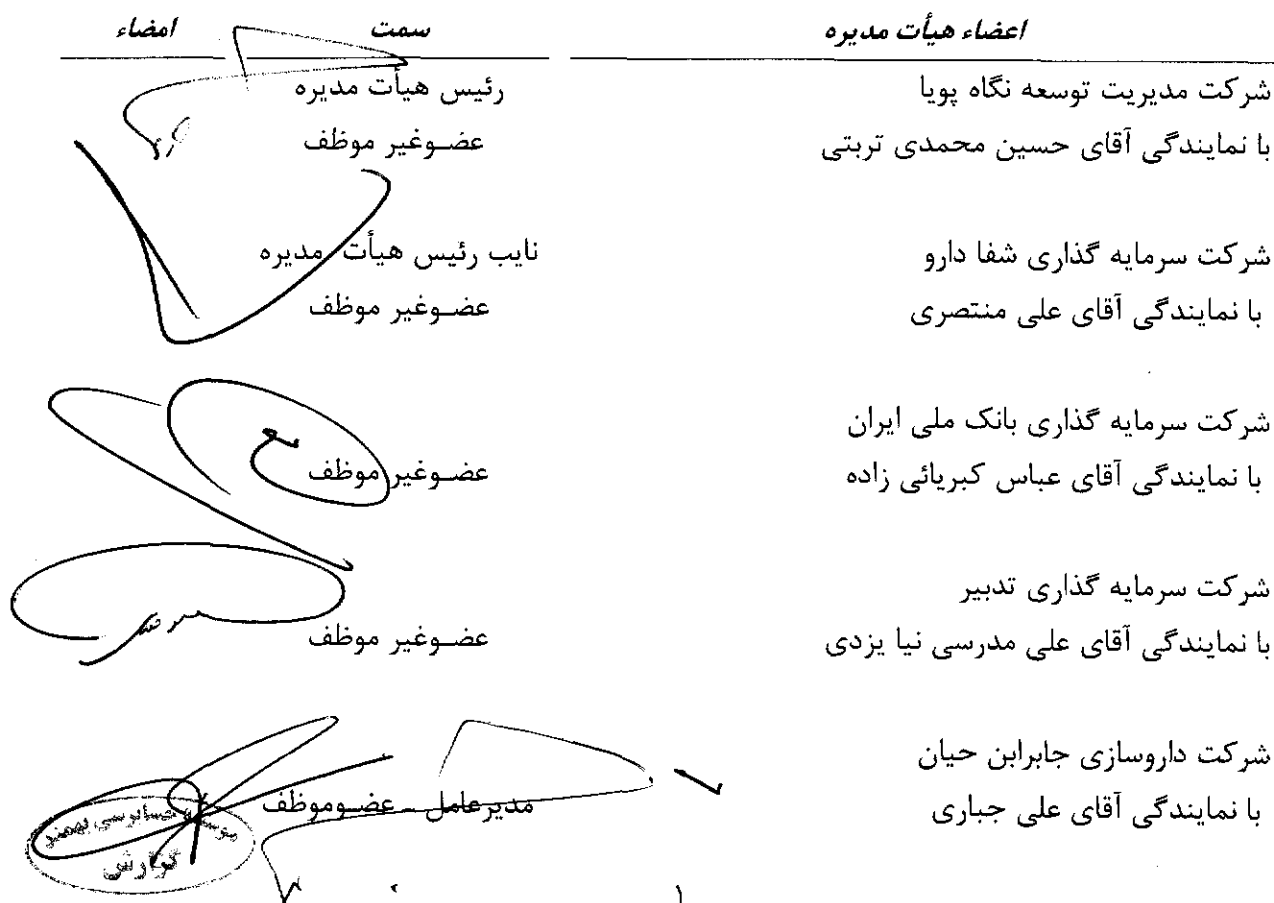 اعضاء هیأت مدیره سمت امضاء
شرکت مدیریت توسعه نگاه پویا رئیس هیأت مدیره
با نمایندگی آقای حسین محمدی تربتی عضوغیر موظف
شرکت سرمایه گذاری شفا دارو نایب رئیس هیأت مدیره
با نمایندگی آقای علی منتصری عضوغیر موظف
شرکت سرمایه گذاری بانک ملی ایران
با نمایندگی آقای عباس کبریائی زاده عضوغیر موظف
شرکت سرمایه گذاری تدبیر
با نمایندگی آقای علی مدرسی نیا یزدی عضوغیر موظف
شرکت داروسازی جابرابن حیان
با نمایندگی آقای علی جباری مدیرعامل - عضوموظف
موسسه حسابرسی بهمند
گزارش
۱